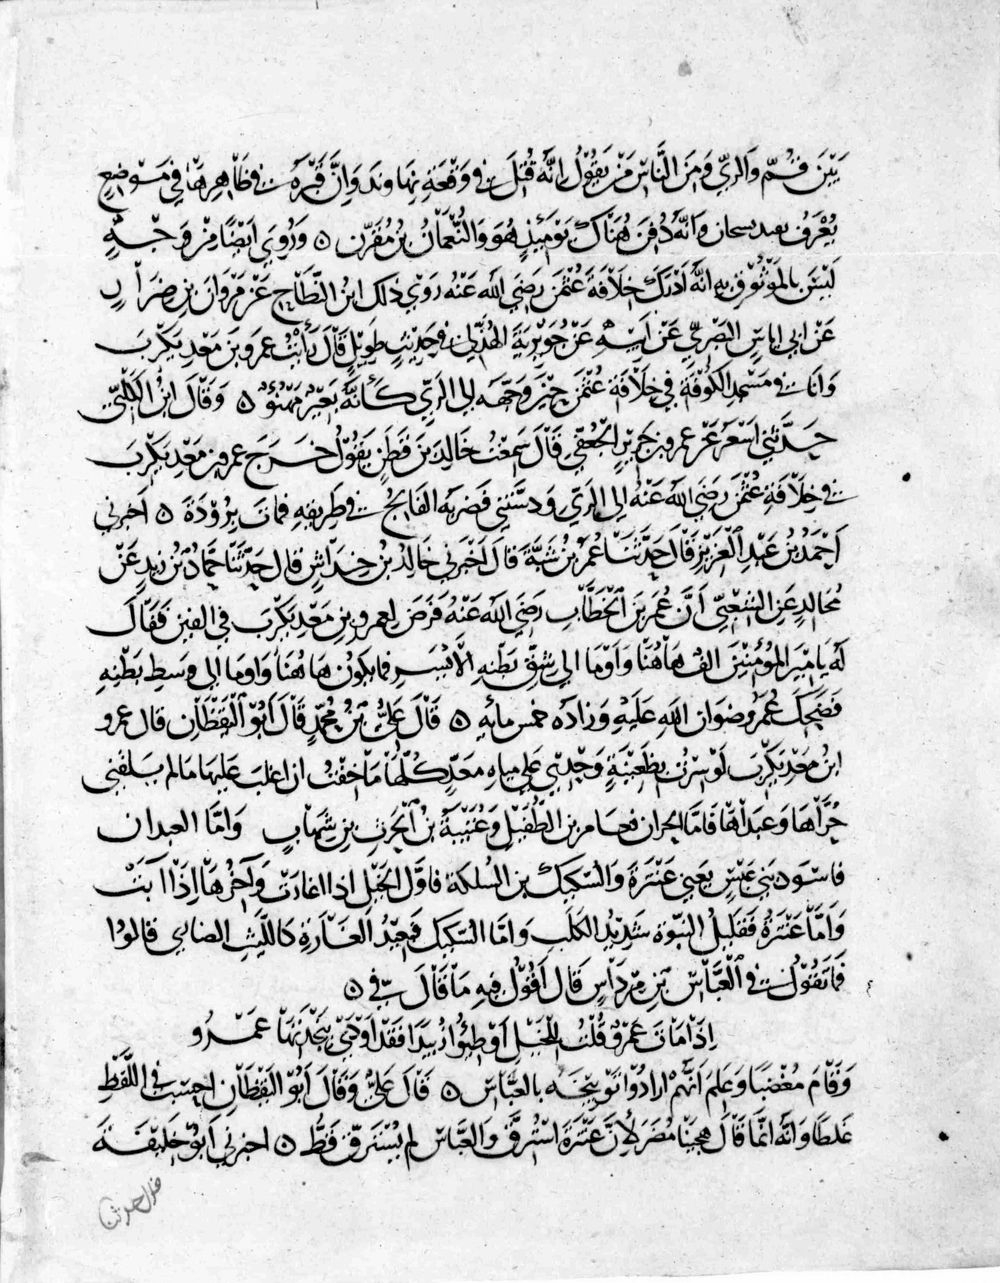 بَيْنَ قُمّ وَالرِّيّ وَمِنَ النَّاسِ مَنْ يَقُولُ انَّهُ قُتِلَ في وَقْعَةِ نِهَاوند وَانَّ قَبْرَهُ في ظَاهِرِهَا في مَوْضِعٍ
يُعْرَفُ وَانَّهُ دُفِنَ هُنَاكَ يَوْمَئِذٍ هُوَ وَالنُّعْمَانُ بن مُقَرِّن ۞ وَرُوِيَ ايْضًا مِنْ وَجْهٍ
لَيْسَ بِالمَوْثُوقِ بِهِ انَّهُ ادْرَكَ خِلَافَةَ عُثْمٰنَ رَضِيَ اللهُ عَنْهُ رَوَي ذَلكَ ابنُ النَّطَّاحِ عَنْ مَرْوَانَ بنِ ضِرَارٍ
عَنْ ابي اياس البَصْرِيِّ عَنْ ابِيْهِ عَنْ جُوَيْرِيَةَ الهُذَليّ في حَدِيْثٍ طَوِيْلٍ قَالَ رَأَيْتُ عمرو بنَ مَعْدِ يْكَرِبَ
وَانا في مَسْجِدِ الكُوْفَةِ في خِلَافَةِ عُثْمٰنَ حِيْنَ وَجَّهَه الي الرَّيِّ كَأَنَّهُ بَعِيْرٌ مَهْنُوْءٌ ۞ وَقَالَ ابنُ الكَلْبِيِّ
حَدَّثَني اسْعَرُ عَنْ عمرو بن جَرِيْرٍ الجُعْفِيِّ قَالَ سَمِعْتُ خَالدَ بنَ قَطَنٍ يَقُوْلُ خَرَجَ عمرو بنُ مَعْدِ يْكَرِبَ
في خِلَافَةِ عُثْمٰنَ رَضِيَ اللهُ عَنْهُ الي الرَيِّ وَدَسْتَبَي فضربَه الفَالِجُ في طَرِيقِهِ فماتَ بِرُوْذَةَ ۞ اخبرني
أحْمَدُ بنُ عَبْدِ العَزِيْزِ قَالَ حَدَّثَنَا عُمَرُ بنُ شَبَّةَ قَالَ اخْبَرَني خَالِدُ بنُ خِدَاشٍ قَال حَدَّثَنَا حَمَّادُ بنُ زيدٍ عَنْ
مُجَالدٍ عَنِ الشَّعْبِيِّ أَنَّ عُمَرَ بنَ الخَطَّابِ رَضِيَ اللهُ عَنْهُ فَرَضَ لعمرو بنِ مَعْدِ يْكَرِبَ في الفين فَقَالَ
لَهُ يا امِيْرَ المُؤْمِنِيْنَ الفٌ هَاهُنَا وَاوْمَا الي شِقِّ بَطْنِهِ الْايْسَرِ فما يكونُ هَاهُنَا وَاوما الي وَسَطِ بَطْنِهِ
فَضَحِكَ عُمَرُ رِضوَان اللهِ عَلَيْهِ وَزَادَه خمس مائهٍ ۞ قَالَ عَليُّ بنُ مُحَمَّدٍ قَالَ أَبُو اليَقْظَانِ قال عمرو
ابنُ مَعْدِ يْكَرِبَ لَوْ سِرْتُ بِظَعِيْنَةٍ وَحْدِي عَلي مِياهِ مَعَدٍّ كُلِّهَا مَا خِفْتُ ان اغلبَ عَلَيهَا مَا لم يَلْقَني
حُرَّاهَا وَعَبْدَاهَا فَامَّا الحران فعامر بن الطُّفَيْلِ وَعُتَيْبَةُ بنُ الحَرِثِ بنِ شِهَابٍ وَامَّا العبدان
فاسْوَد بَنِي عَبْسٍ يَعني عَنْتَرَةَ وَالسُّلَيْكَ بنَ السُلَكَةِ فاوَّلُ الخَيْلِ اذا اغَارَتْ وَآخِرُهَا اذَا آبَتْ
وَامَّا عَنْتَرَةُ فَقَلِيلُ النَّبْوَةِ شَدِيْدُ الكَلَبِ وَامَّا السُّلَيكُ فَبَعِيْدُ الغَارَةِ كاللَّيْثِ الضاري قَالوُا
فمَا تَقُوْلُ في العَبَّاسِ بنِ مِرْدَاسٍ قَال اقُوْل فِيهِ مَا قَالَ فِيَّ ۞
اذَا مَاتَ عَمْرٌو قُلْتُ للخَيْلِ اوْطِئُوا زُبَيْدًا فَقَدْ اوْدَي بِنَجْدَتِهَا عَمْرُو
وَقَامَ مُغْضَبًا وَعَلِمَ انَّهُمْ ارَادُوْا تَوْبِيْخَهُ بالعَبَّاسِ ۞ قَالَ عَلِيٌّ وَقَالَ ابُوْ اليَقْظَانِ احْسِبُ في اللَّفْظِ
غَلَطًا وَانَّهُ انَّمَا قَالَ هَجِيْنَا مُضَر لِانَّ عَنْتَرَةَ اسْتُرِقَّ وَالعَبَّاسَ لم يُسْتَرقّ قَطُّ ۞ اخبرني ابُوْ خَلِيْفَةَ